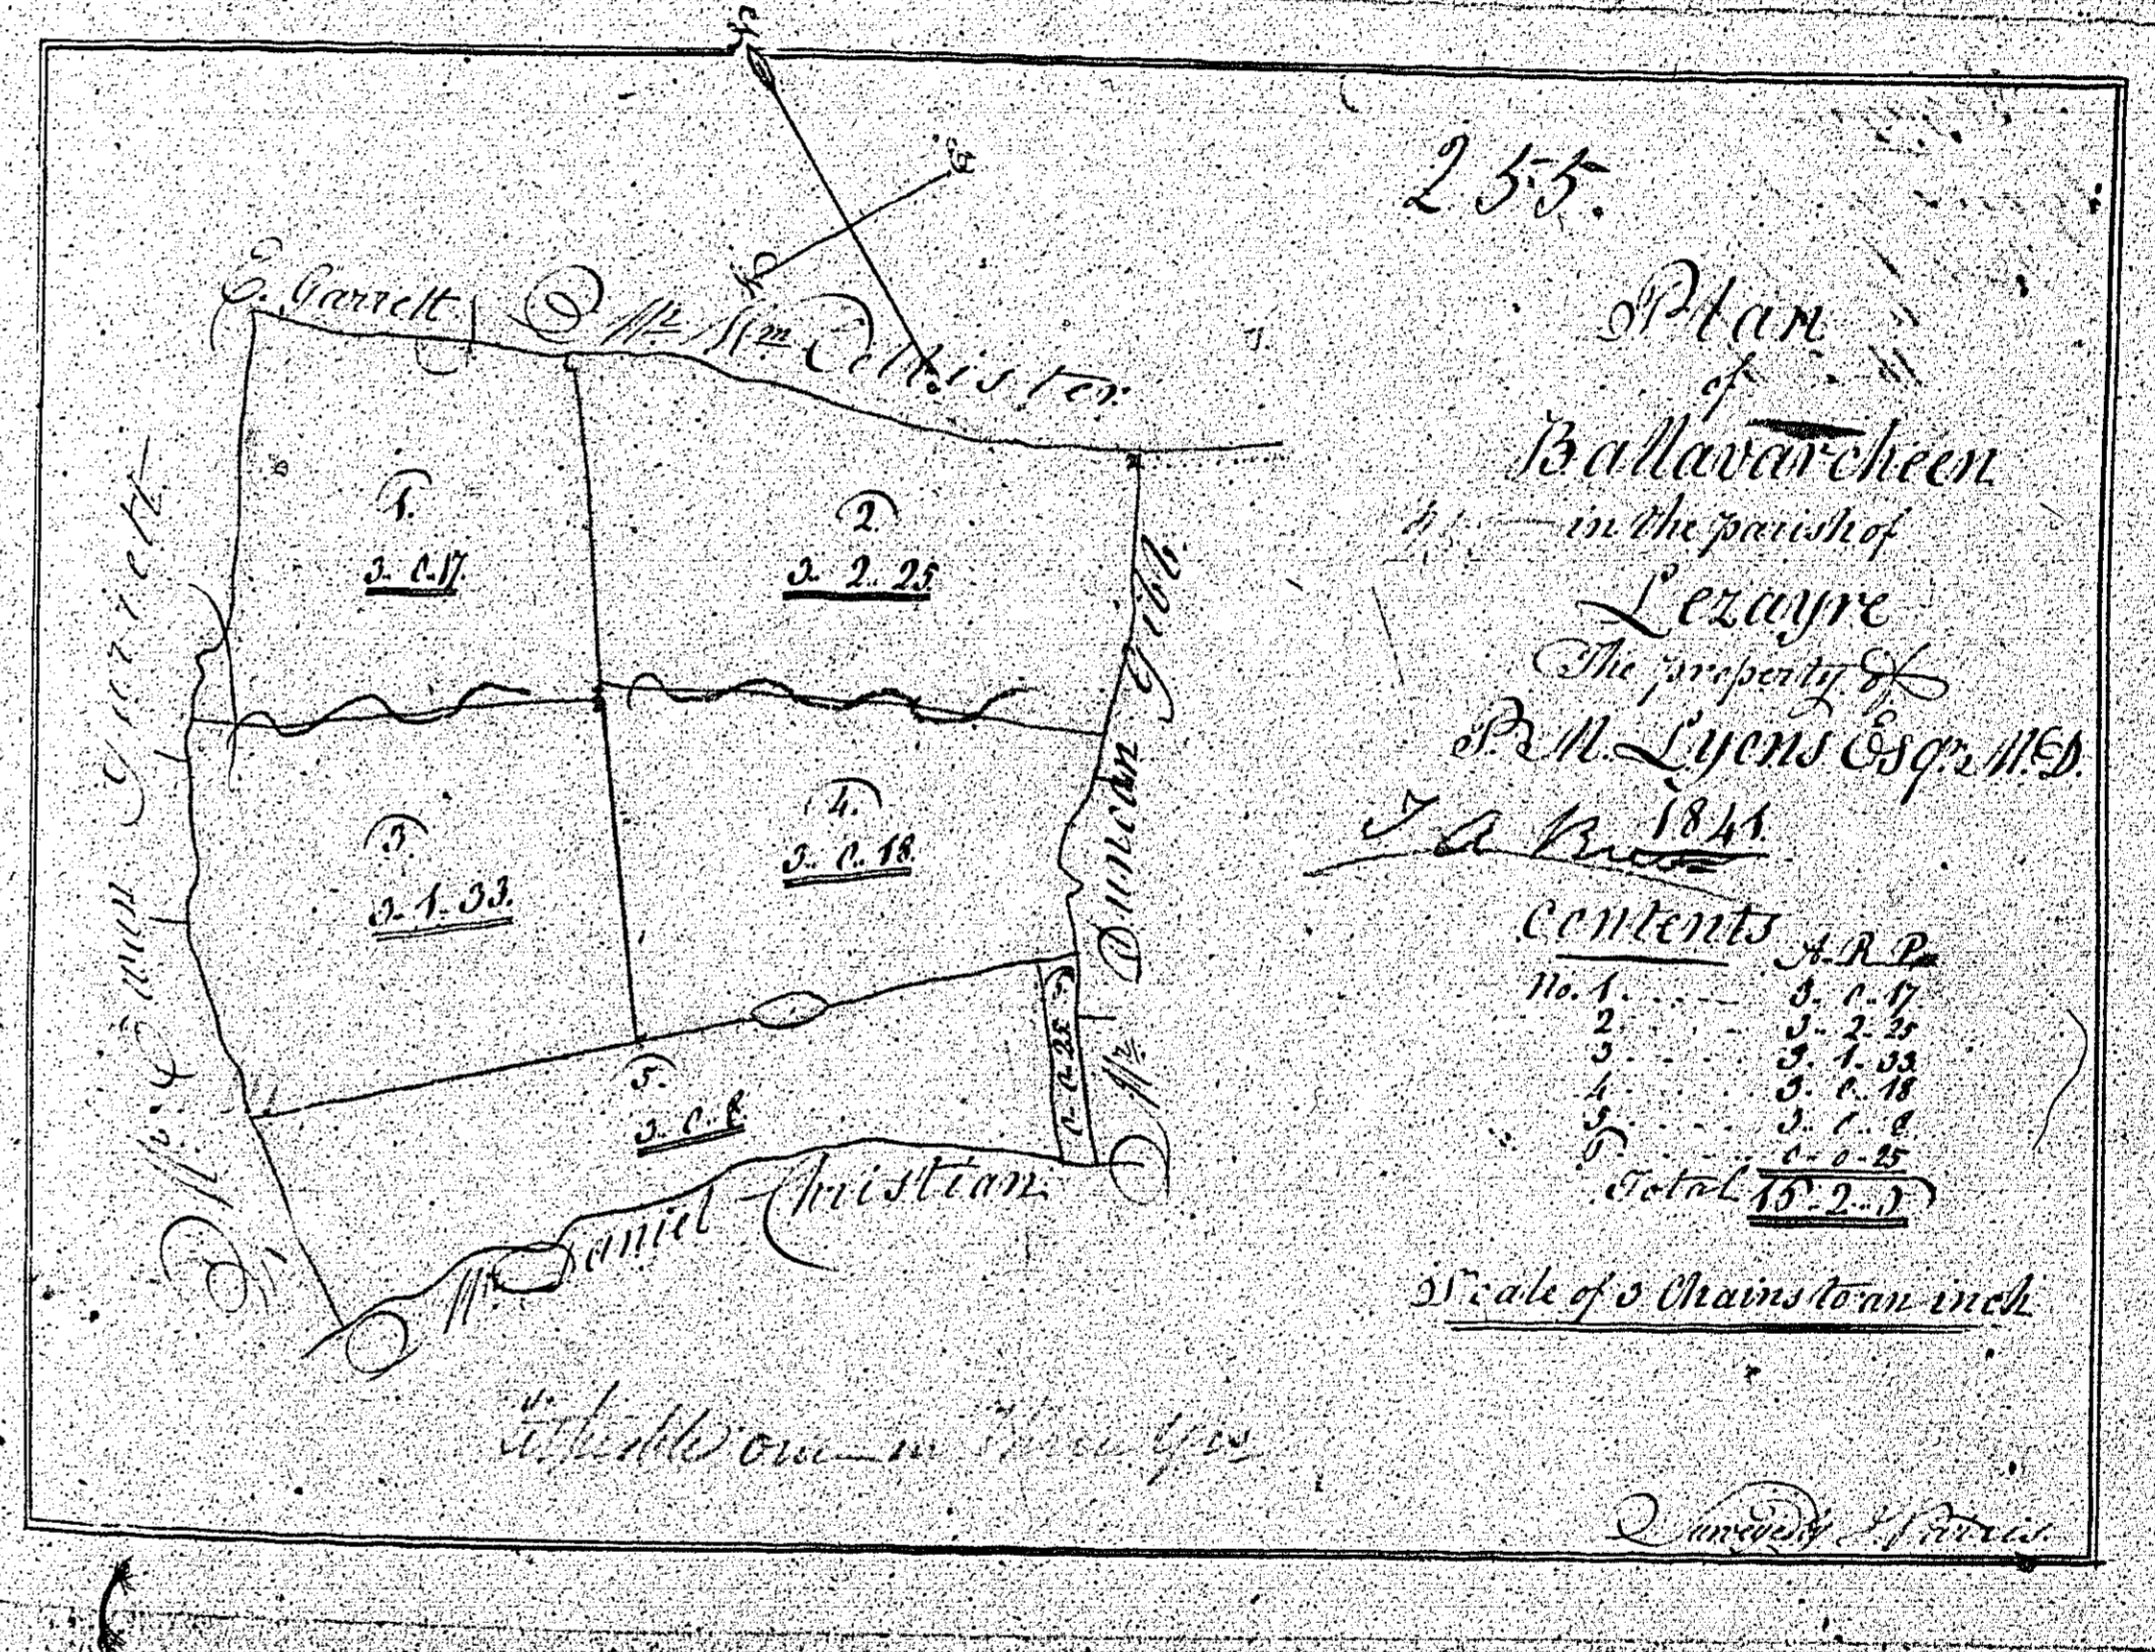 255.
Plan
of
Ballavarcheen
in the parish of
Lezayre
The property of
P. M. Lyons Esqr. M.D.
1841.
J A
Contents
A. R. P.
No. 1. 3. 0. 17.
2. 3. 2. 25
3. 3. 1. 33.
4. 3. 0. 18
5. 3. 0. 8.
6. 0. 0. 25
Total
Scale of 3 Chains to an inch
Surveyed by
E. Garrett
Mr. Wm.
Mr. Garrett
Mr. Duncan Gibb.
Mr. Daniel Christian.
1.
3. 0. 17.
2
3. 2. 25
3.
3. 1. 33.
4.
3. 0. 18.
5.
3. 0. 8.
0. 0. 25